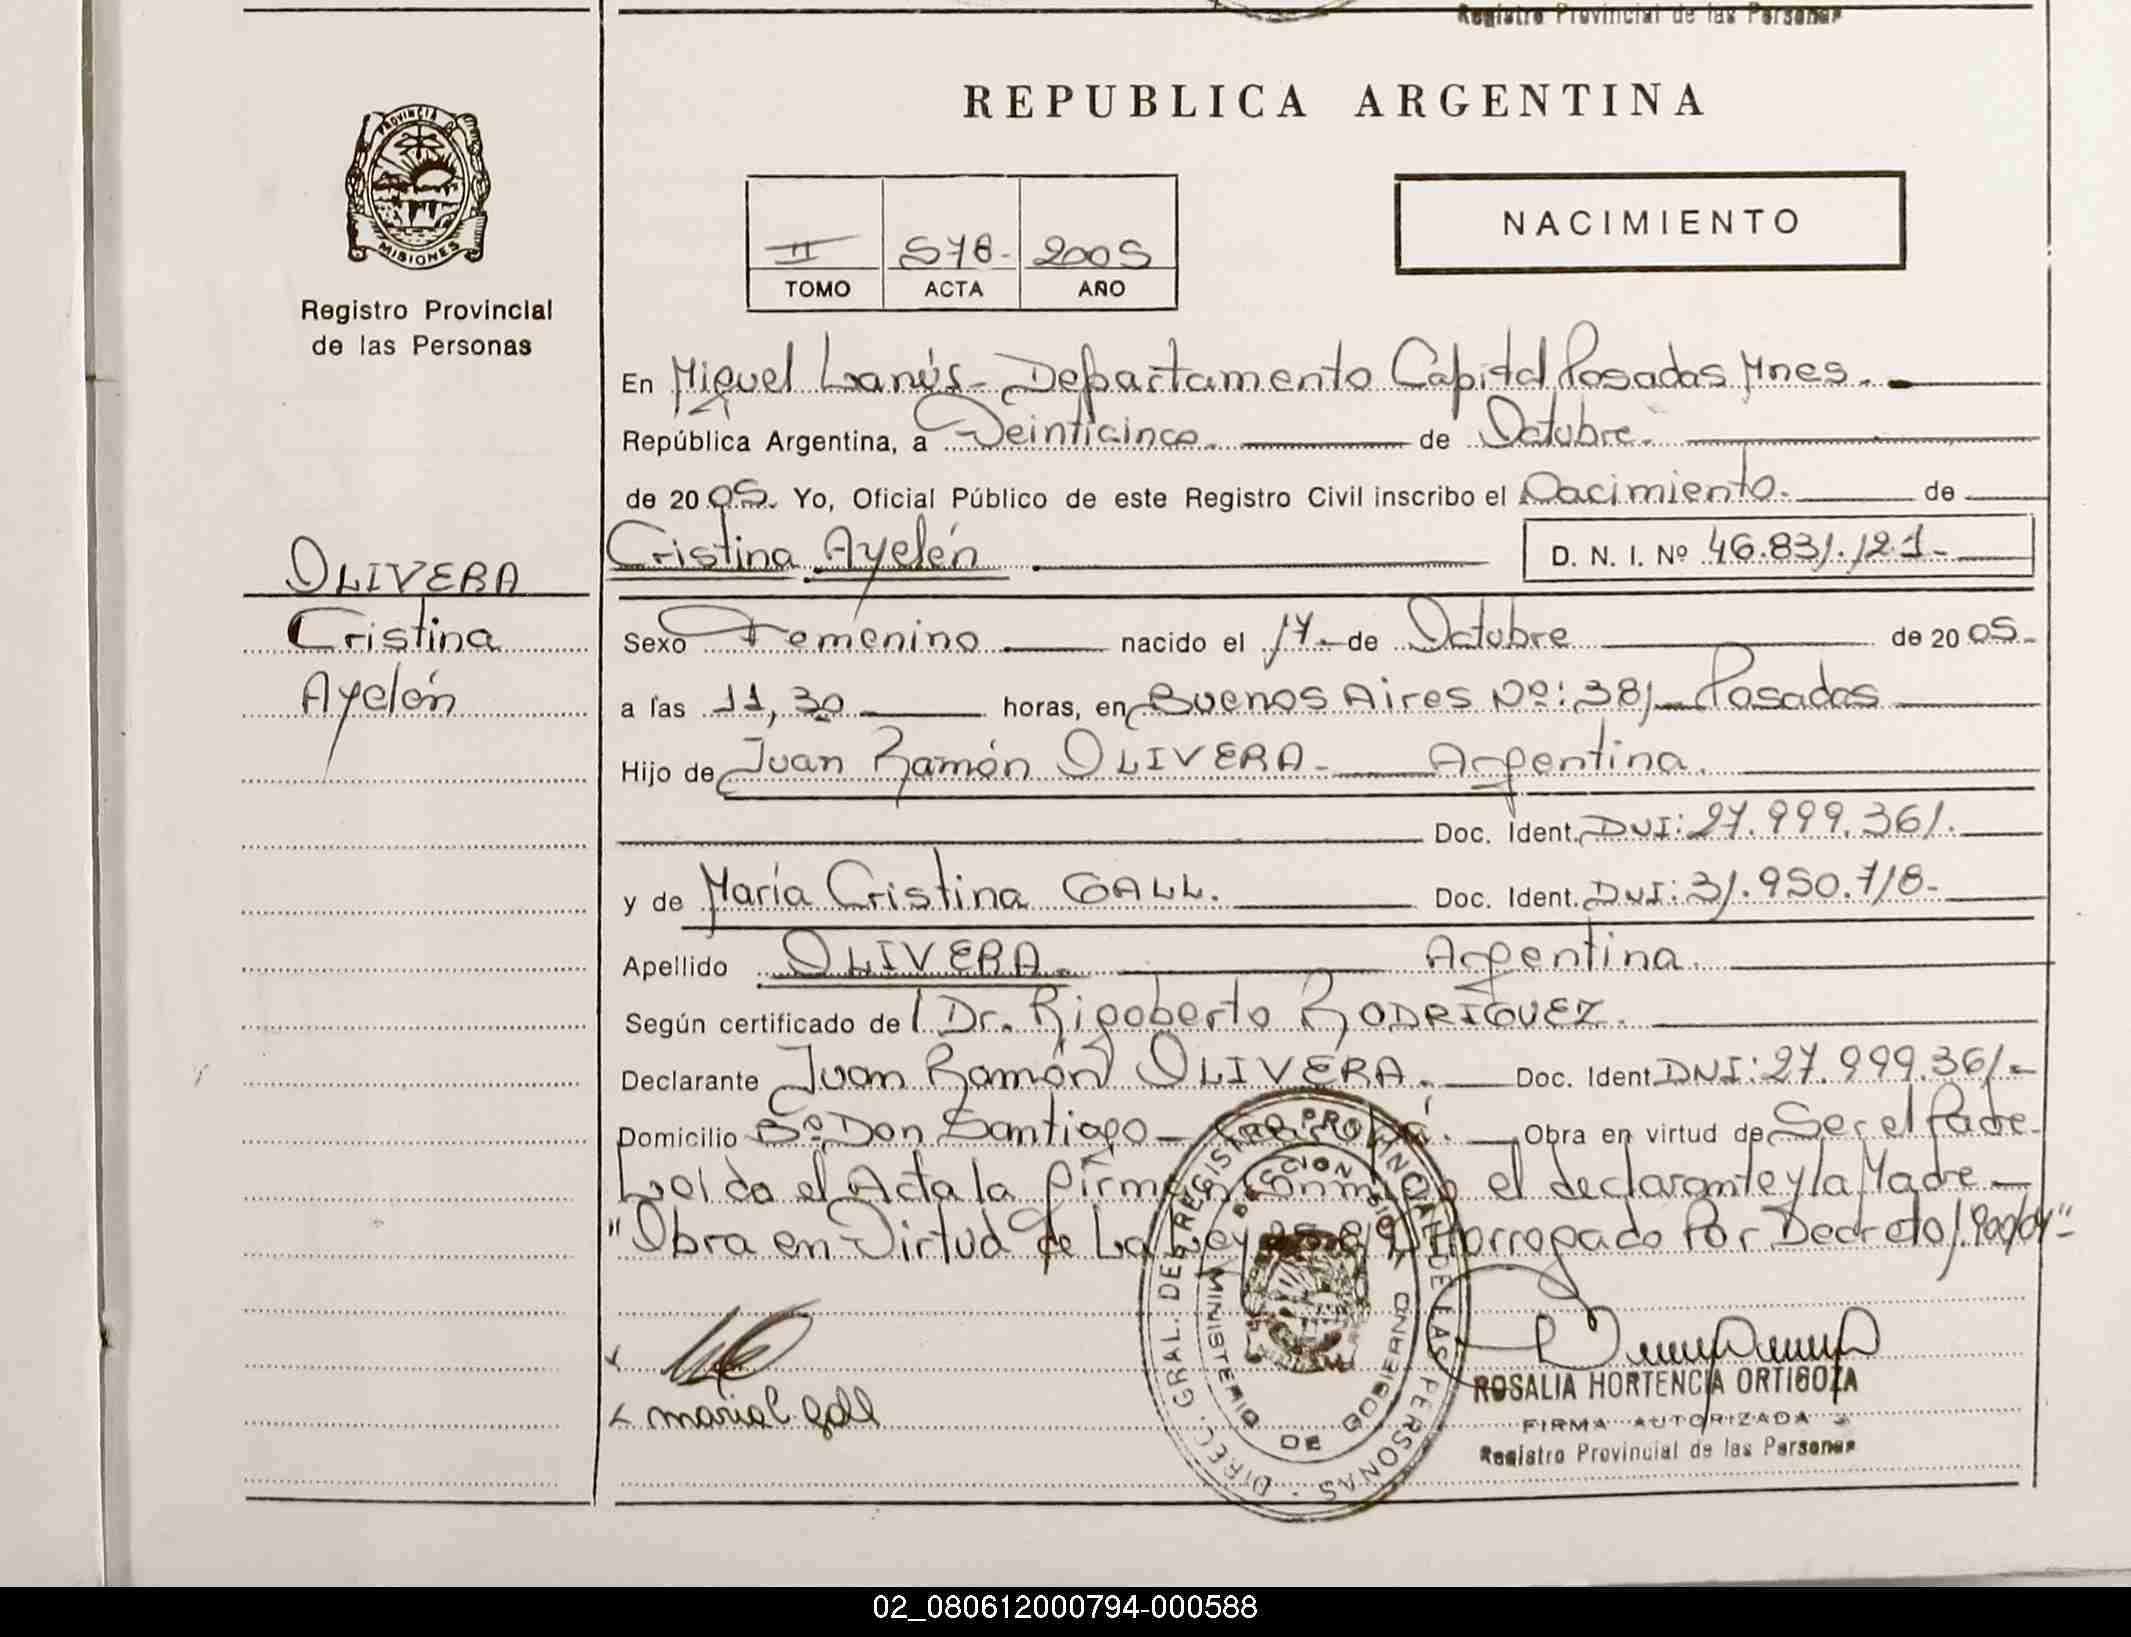 Registro Provincial de las Personas
REPUBLICA ARGENTINA
PROVINCIA D
MISIONES
Registro Provincial
de las Personas
NACIMIENTO
II 578- 2005
TOMO ACTA AÑO
En Miguel Lanús - Departamento Capital Posadas Mnes.
República Argentina, a Veinticinco. de Octubre.
de 2005. Yo, Oficial Público de este Registro Civil inscribo el Nacimiento. de
Cristina Ayelén D. N. I. Nº 46.831.121-
OLIVERA
Cristina
Ayelén
Sexo Femenino nacido el 17- de Octubre de 2005-
a las 11,30 horas, en Buenos Aires Nº: 381 - Posadas
Hijo de Juan Ramón OLIVERA - Argentina.
Doc. Ident. DNI: 27.999.361.
y de María Cristina GALL. Doc. Ident. DNI: 31.950.718-
Apellido OLIVERA. Argentina.
Según certificado de l Dr. Rigoberto RODRIGUEZ.
Declarante Juan Ramón OLIVERA. Doc. Ident DNI: 27.999.361-
Domicilio Bº Don Santiago - Obra en virtud de Ser el Padre-
Leída el Acta la firman conmigo el declarante y la Madre-
"Obra en Virtud de La Ley Horrogado Por Decreto
maria C. Gall
DIREC. GRAL. DEL REGISTRO PROVINCIAL DE LAS PERSONAS
MINISTERIO DE GOBIERNO
ROSALIA HORTENCIA ORTIGOZA
FIRMA AUTORIZADA
Registro Provincial de las Personas
02_080612000794-000588